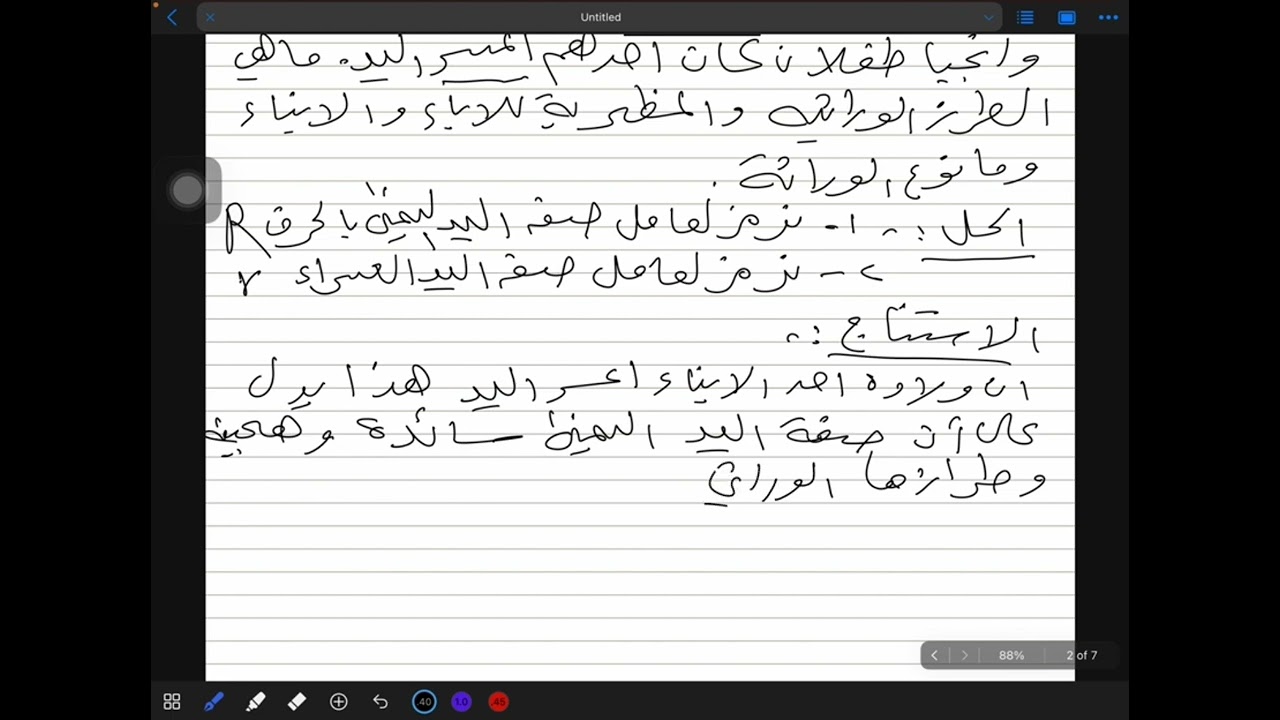 Untitled
وانجبا طفلان كان احدهم اعسر اليد. ماهي
الطرز الوراثية والمظهرية للاباء والابناء
وما نوع الوراثة.
الحل :. 1- نرمز لعامل صفة اليد اليمنى بالحرف R
2- نرمز لعامل صفة اليد العسراء r
الاستنتاج :.
ان ولادة احد الابناء اعسر اليد هذا يدل
على أن صفة اليد اليمنى سائدة وهجينة
وطرازها الوراثي
88%
2 of 7
.40
1.0
.45